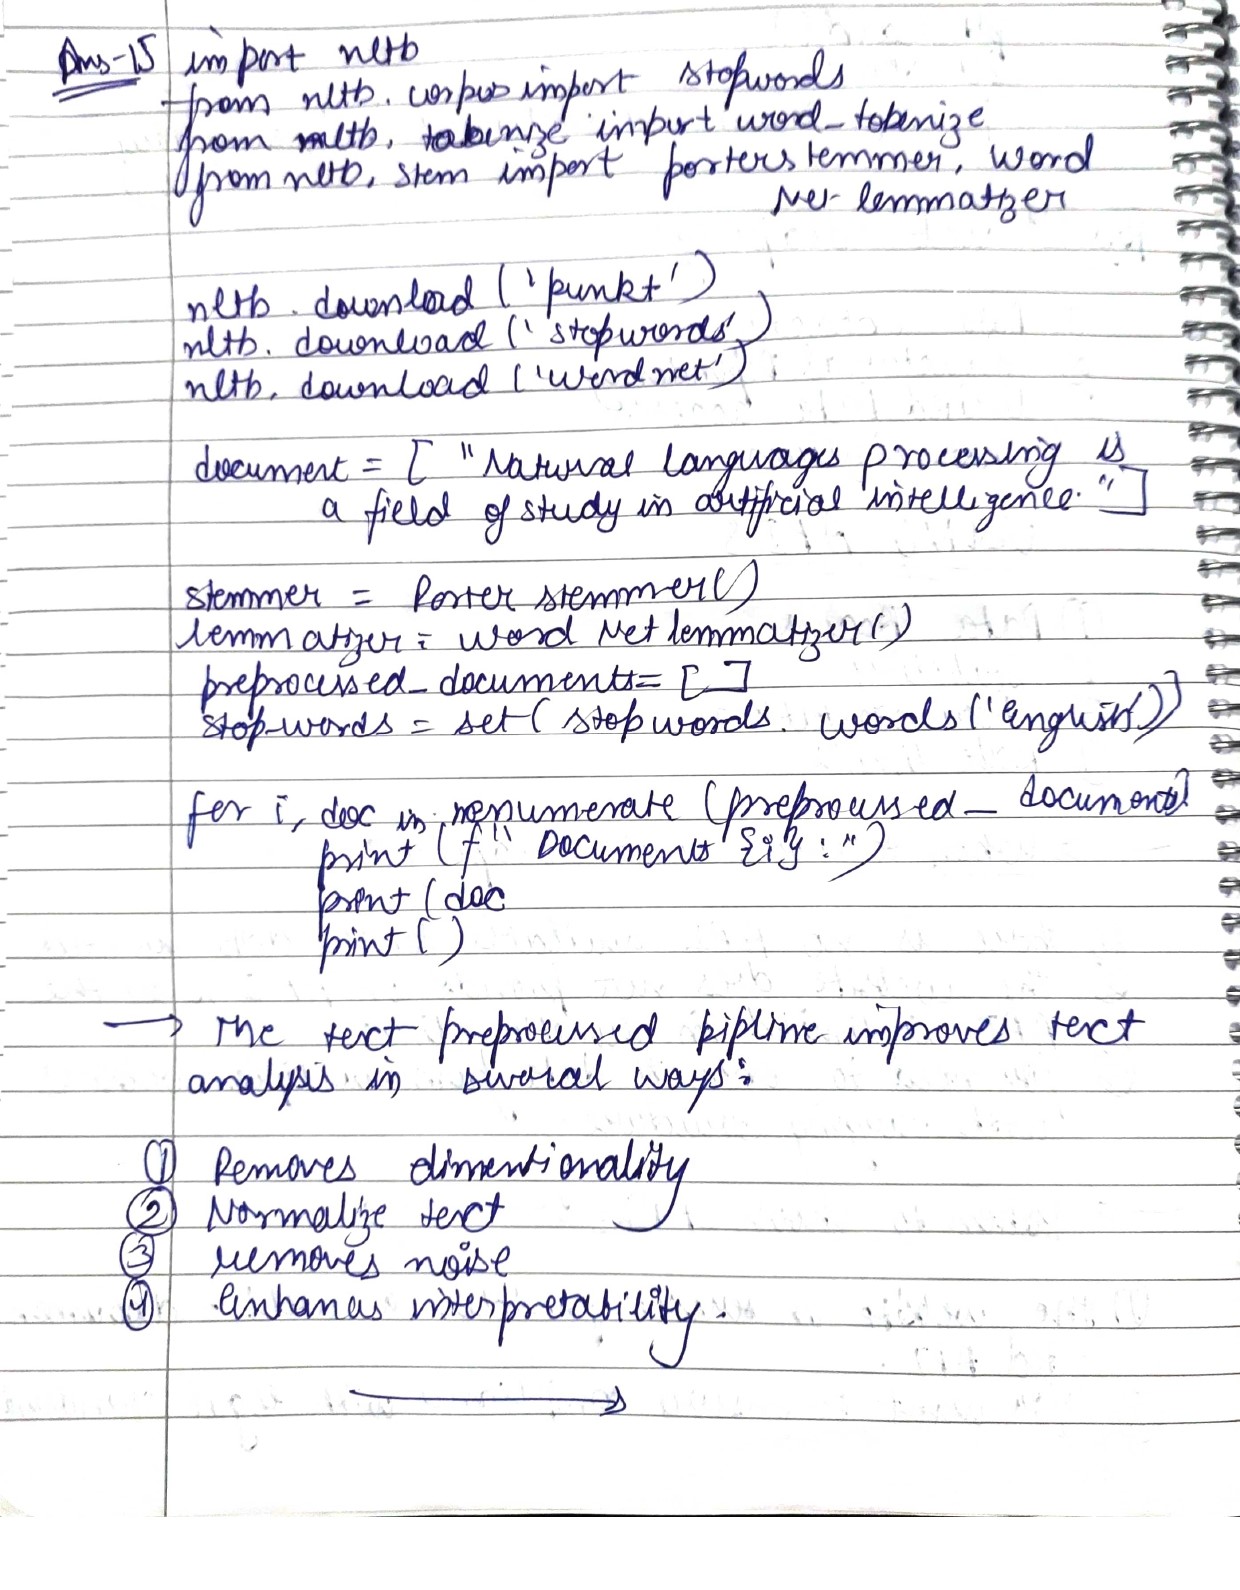 Ans-15 import nltb
from nltb. corpus import stopwords
from nltb. tokenize import word_tokenize
from nltb. stem import porterstemmer, word
Net lemmatizer
nltb. download ('punkt')
nltb. download ('stopwords')
nltb. download ('wordnet')
document = [ "Natural languages processing is
a field of study in artificial intelligence. "]
stemmer = Porter stemmer()
lemmatizer = word Net lemmatizer()
preprocessed_documents= []
stop-words = set( stopwords. words ('english'))
for i, doc in enumerate (preprocessed_ documents)
print (f" Documents {i} : ")
print (doc
print ()
→ The text preprocessed pipline improves text
analysis in several ways:
① Removes dimentionality
② Normalize text
③ removes noise
④ Enhances interpretability.